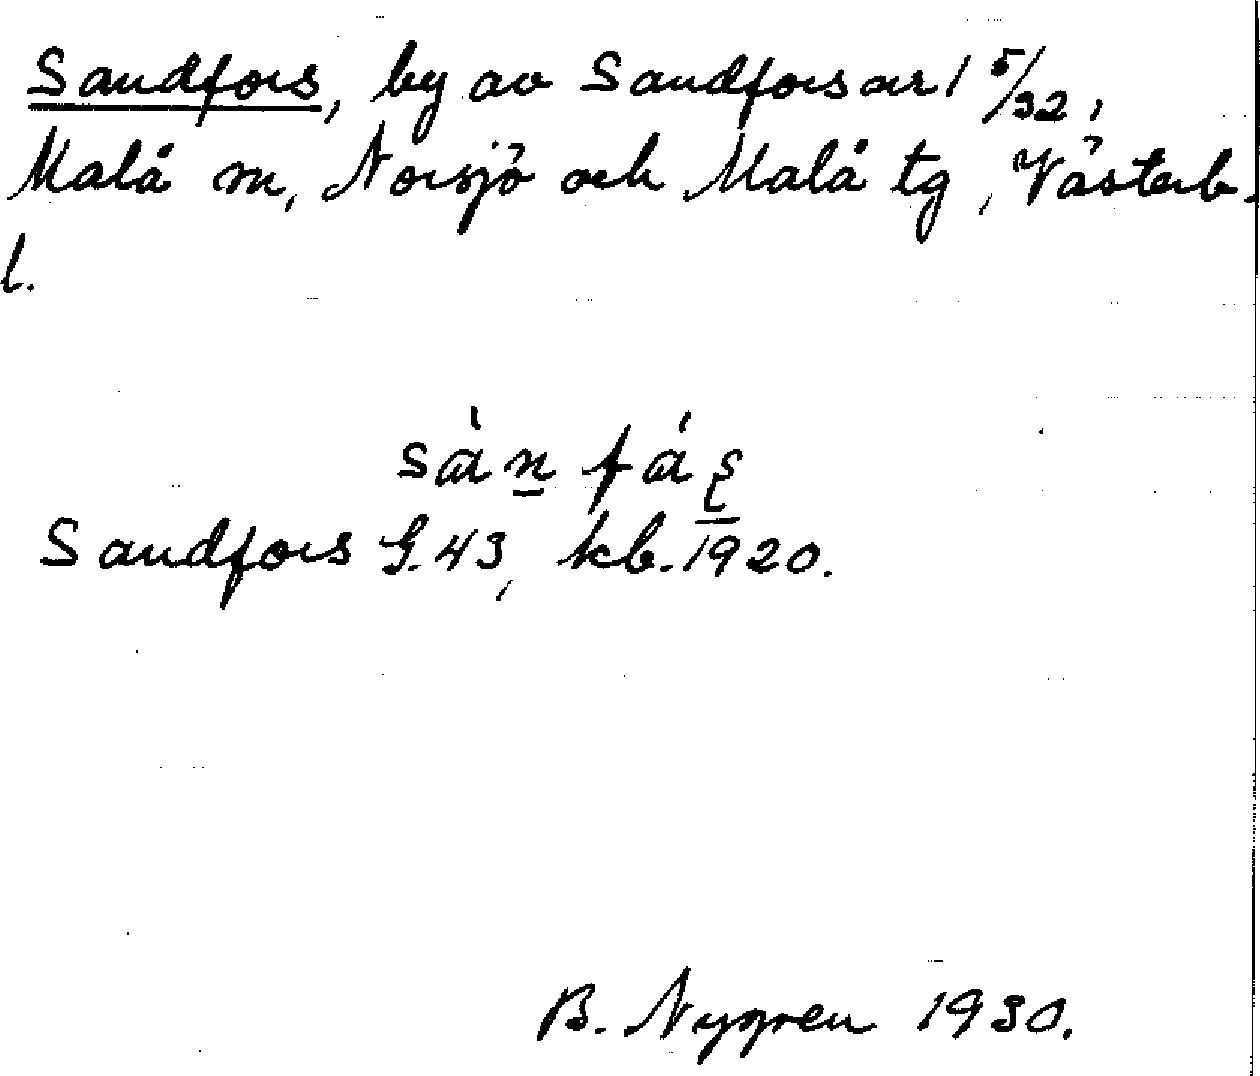 Sandfors, by av Sandfors ar 1 5/32,
Malå m, Norsjö och Malå tg, Västerb.
l.
sàn fáş
Sandfors G. 43, kb. 1920.
B. Nygren 1930.